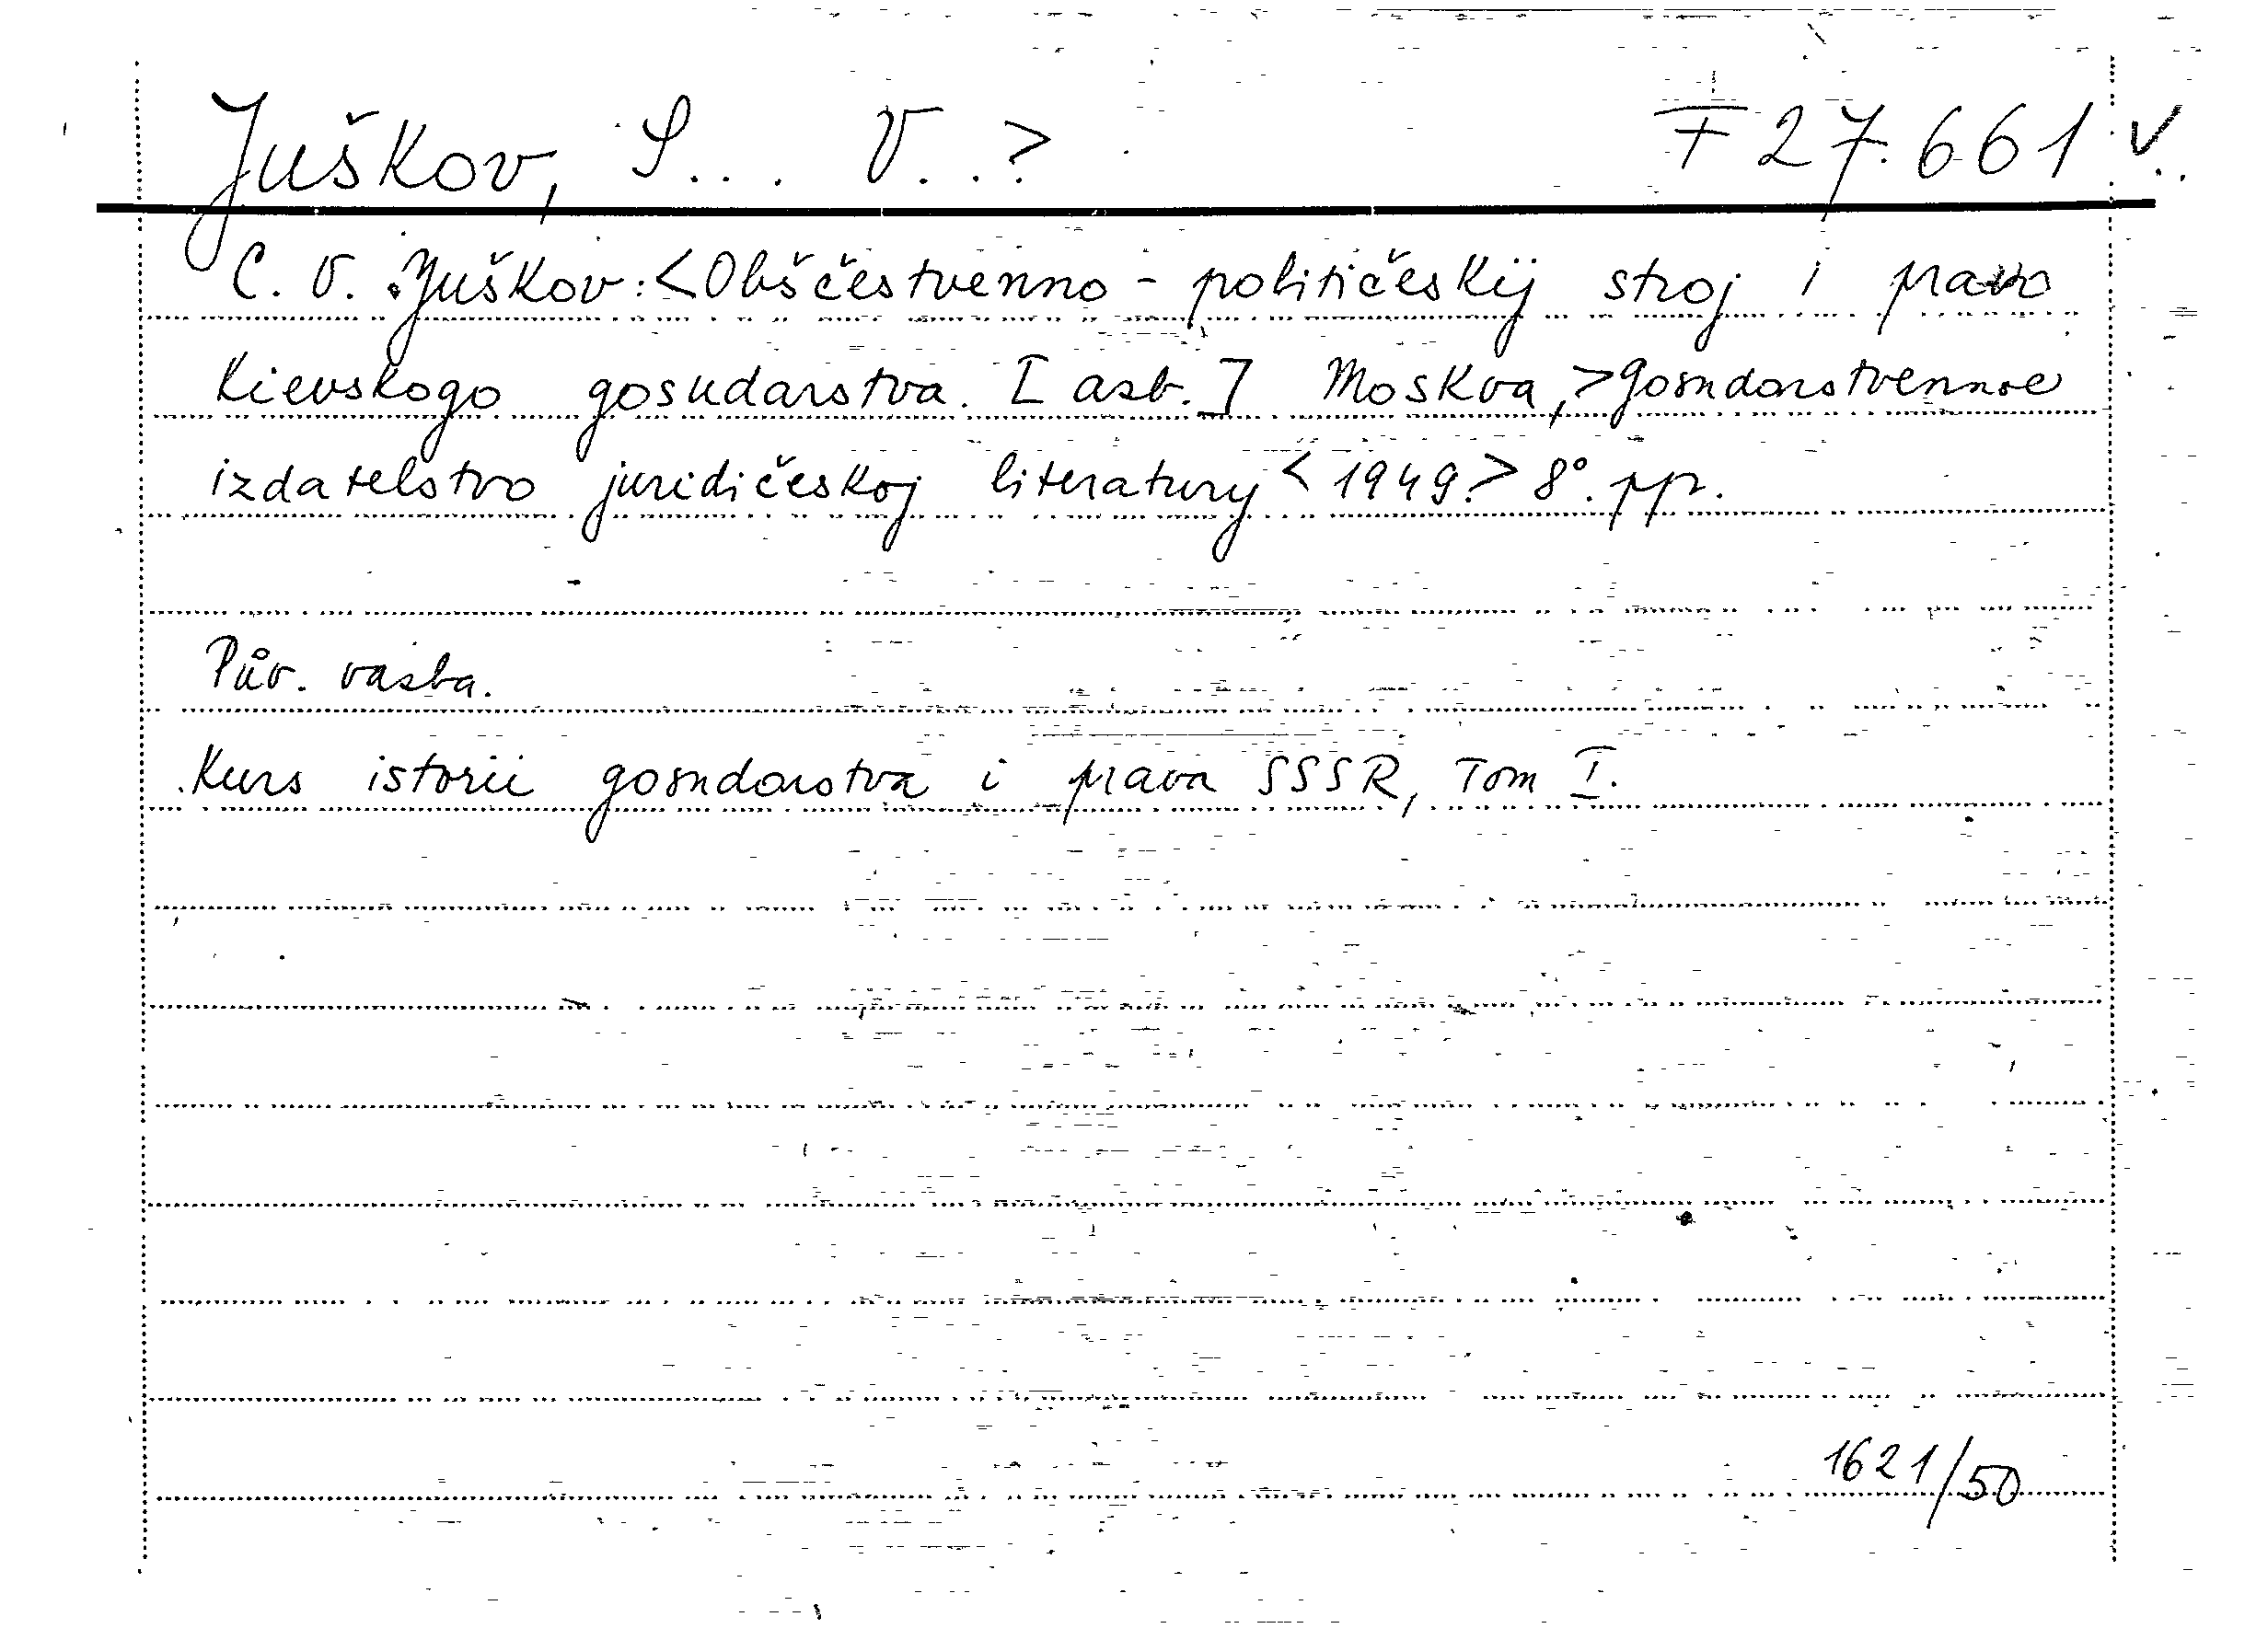 Juškov, S... V..? F 27.661 v..
C. V. Juškov: <Obščestvenno - političeskij stroj i pravo
Kievskogo gosudarstva. [azb.] Moskva,> Gosudarstvennoe
izdatelstvo juridičeskoj literatury <1949.> 8°. pp.
Pův. vazba.
Kurs istorii gosudarstva i prava SSSR, Tom I.
1621/50